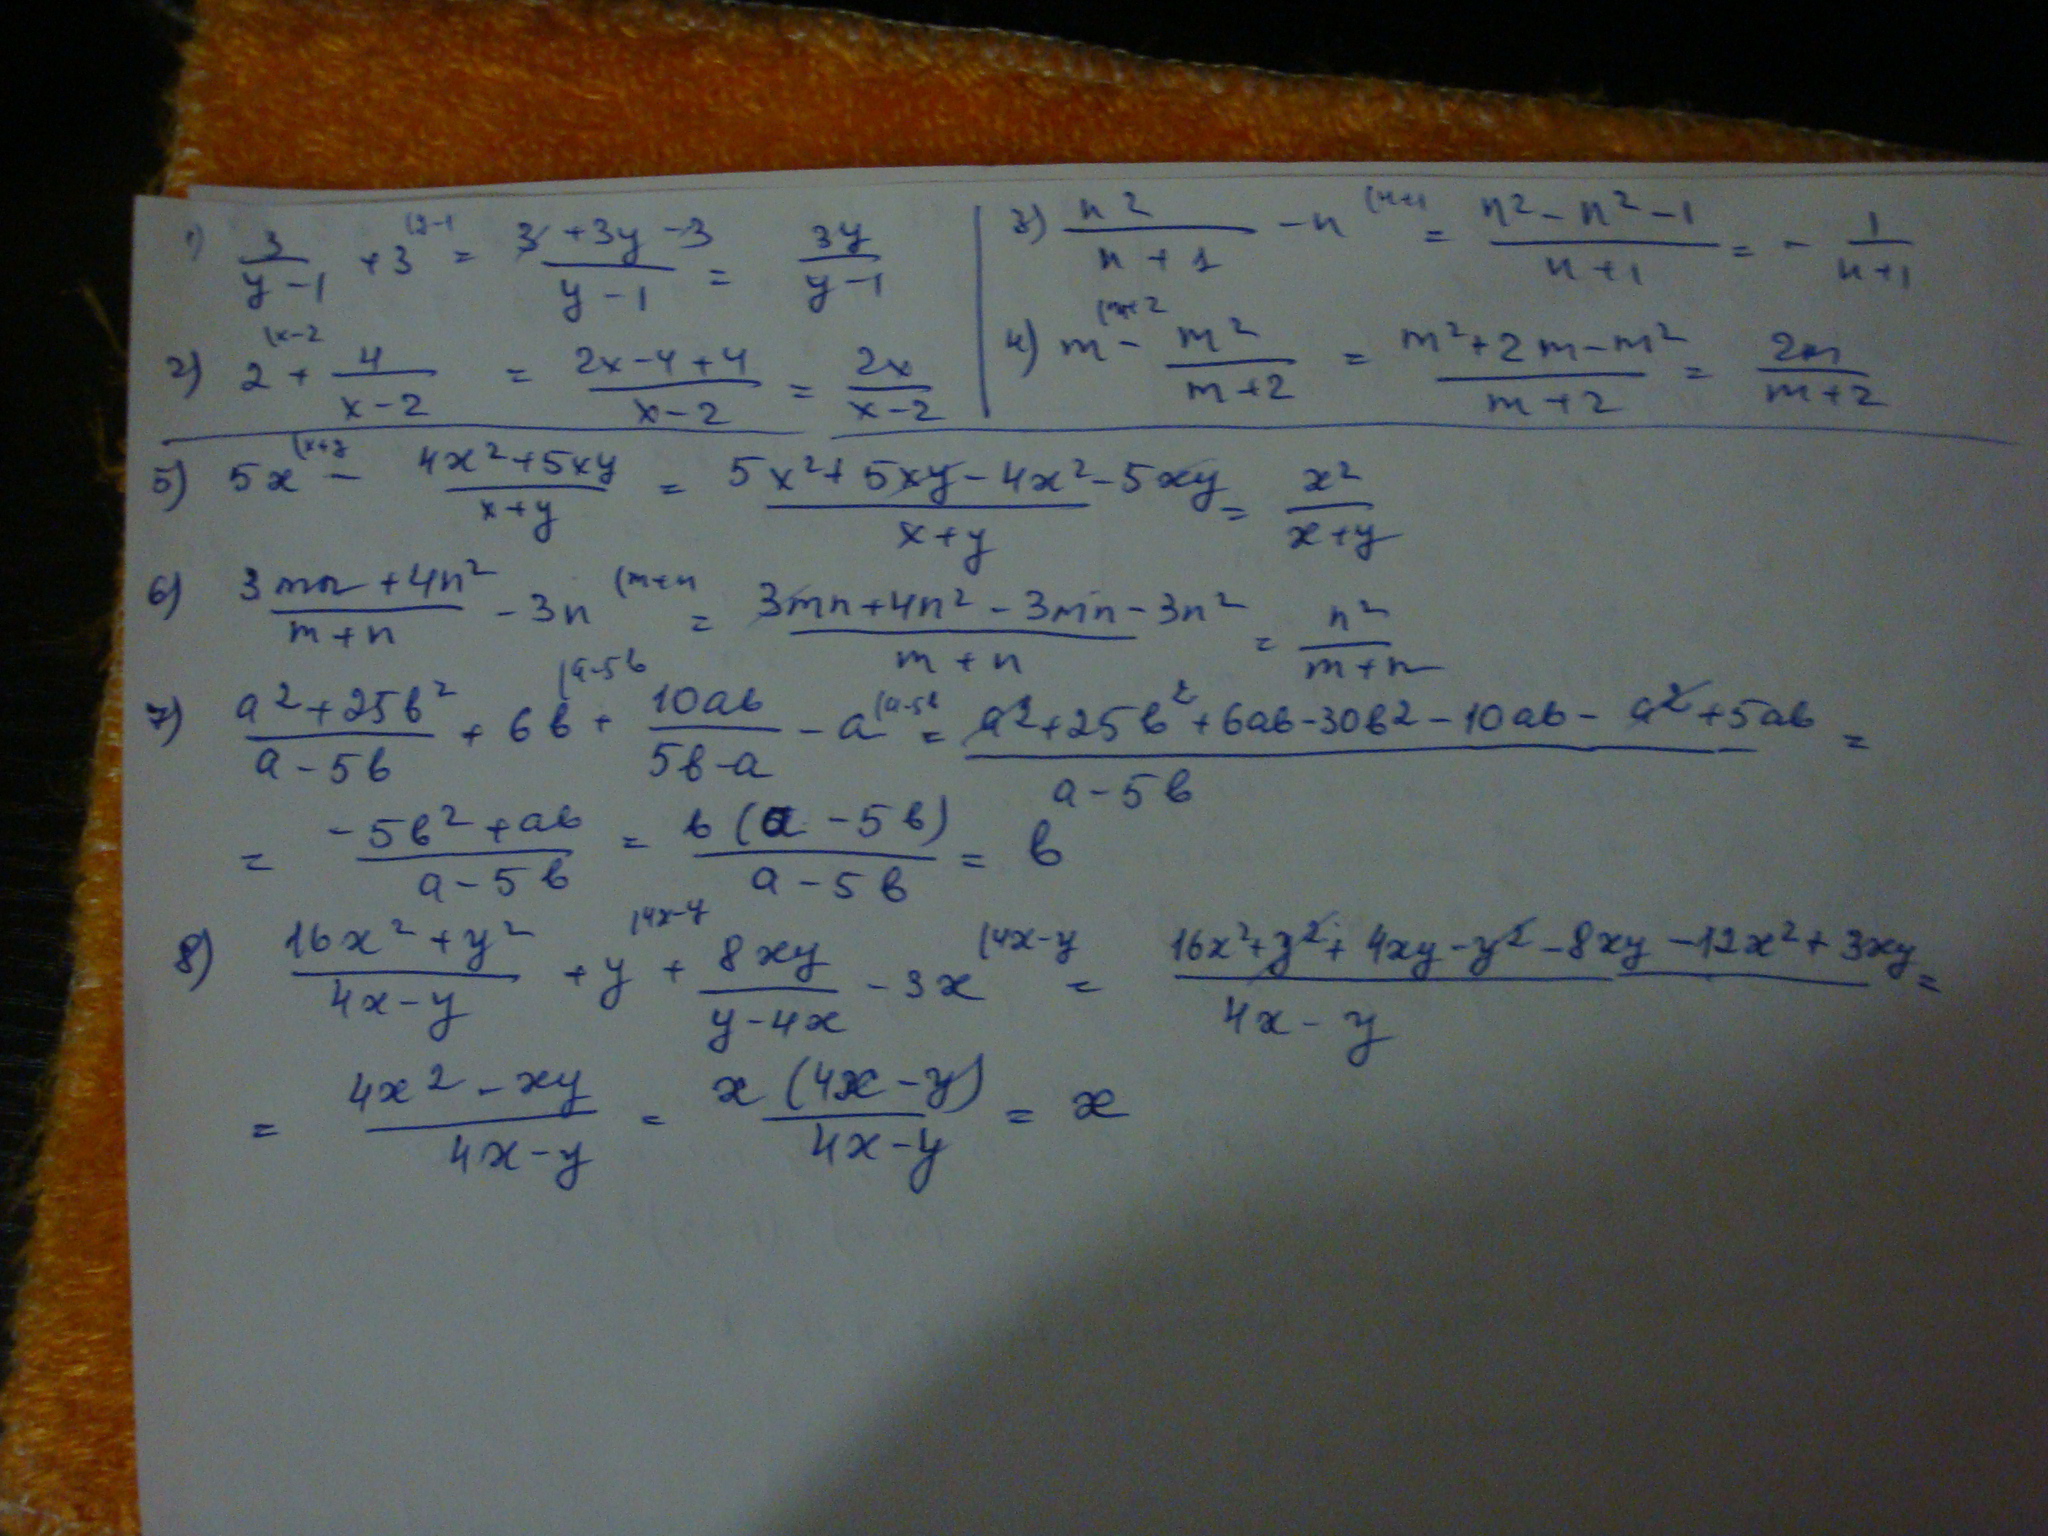 1) 3/(y-1) + 3 (y-1 = (3+3y-3)/(y-1) = 3y/(y-1)
2) 2 (x-2 + 4/(x-2) = (2x-4+4)/(x-2) = 2x/(x-2)
3) n²/(n+1) - n (n+1 = (n²-n²-1)/(n+1) = - 1/(n+1)
4) m (m+2 - m²/(m+2) = (m²+2m-m²)/(m+2) = 2m/(m+2)
5) 5x (x+y - (4x²+5xy)/(x+y) = (5x²+5xy-4x²-5xy)/(x+y) = x²/(x+y)
6) (3mn+4n²)/(m+n) - 3n (m+n = (3mn+4n²-3mn-3n²)/(m+n) = n²/(m+n)
7) (a²+25b²)/(a-5b) + 6b (a-5b + 10ab/(5b-a) - a (a-5b = (a²+25b²+6ab-30b²-10ab-a²+5ab)/(a-5b) =
= (-5b²+ab)/(a-5b) = b(a-5b)/(a-5b) = b
8) (16x²+y²)/(4x-y) + y (4x-y + 8xy/(y-4x) - 3x (4x-y = (16x²+y²+4xy-y²-8xy-12x²+3xy)/(4x-y) =
= (4x²-xy)/(4x-y) = x(4x-y)/(4x-y) = x